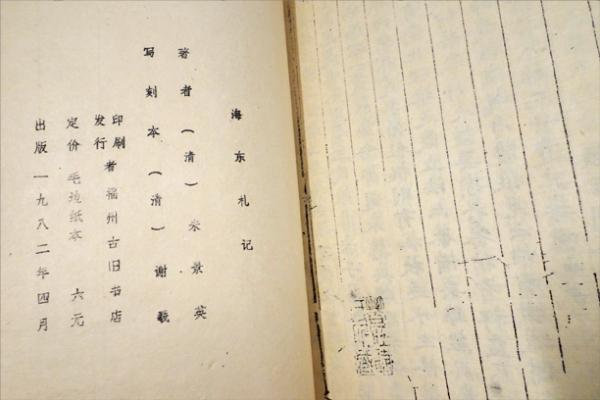 海东札记
著者（清）朱景英
写刻本（清）谢
印刷发行者福州古旧书店
定价毛边纸本 六元
出版一九八二年四月